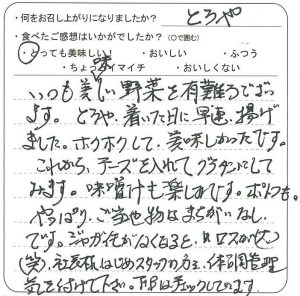 ・何をお召し上がりになりましたか？ とろや
・食べたご感想はいかがでしたか？（○で囲む）
・とっても美味しい！ ・おいしい ・ふつう
・ちょっとイマイチ ・おいしくない
いつも美味しい野菜を有難うござい
ます。とろや、着いた日に早速、揚げ
ました。ホクホクして、美味しかったです。
これから、チーズを入れてグラタンにして
みます。味噌汁も楽しみです。ポトフも。
やっぱり、ご当地物はまちがいなし
です。ジャガイモがなくなると、ロスが大
(笑)、社長様はじめスタッフの方々、体調管理
気を付けて下さい。FBはチェックしています